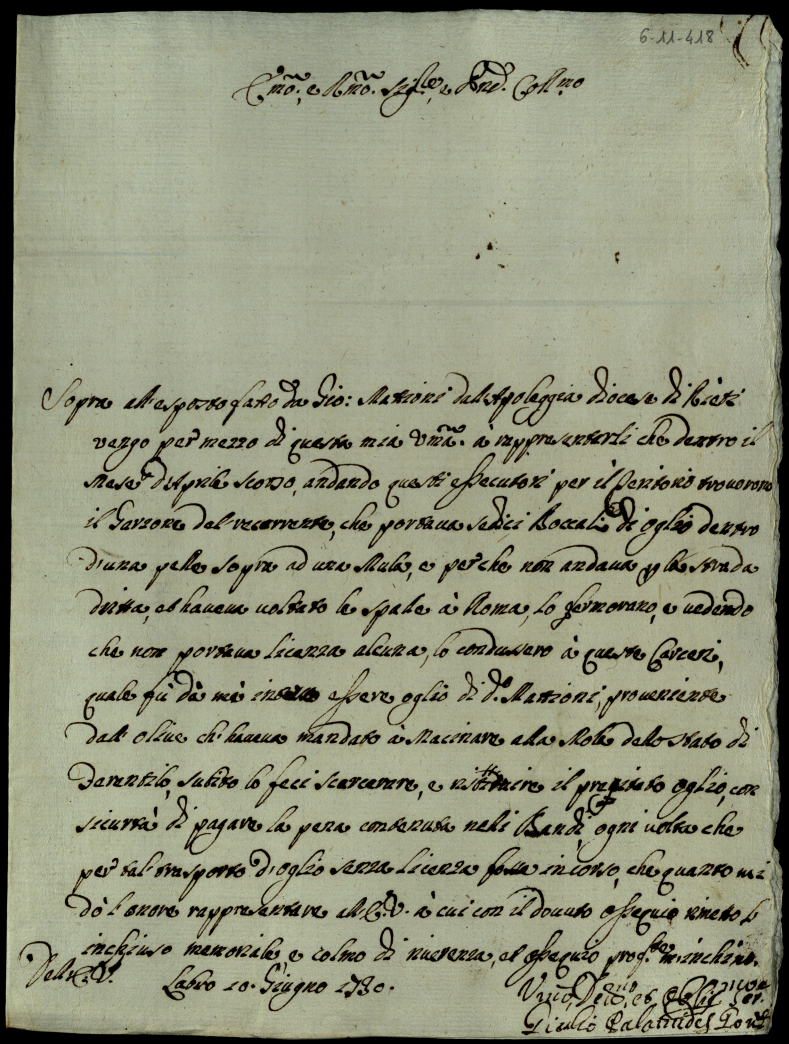 6-11-418
Em̃o. e Rm̃o. Sig.re, e Pñe. Coll.mo
Sopra all'esposto fatto da Gio: Mattioni dall'Apoleggia diocese di Rieti
vengo per mezzo di questa mia um̃a. à rappresentarli che dentro il
Mese d'Aprile scorso, andando questi essecutori per il Teritorio trovorono
il Garzone del recorrente, che portava sedici Boccali di oglio dentro
d'una pelle sopra ad una Mula, e perche non andava p la strada
dritta, et haveva voltato le spale à Roma, lo fermorano, e vedendo
che non portava licenza alcuna, lo condussero à queste Carceri,
quale fù dà mè inteso essere oglio di d.o Mattioni, proveniente
dall'olive ch'haveva mandato à Macinare alla Mola dello stato di
subito lo feci scarcerare, e restituire il precitato oglio, con
sicurtà di pagare la pena contenuta nelli Bandi, ogni volta che
per tal trasporto d'oglio senza licenza fosse incorso, che quanto mi
dò l'onore rappresentare all'E.V. à cui con il dovuto ossequio rimetto l'
inchiuso memoriale, e colmo di riverenza, et ossequio prof.te m'inchino.
Dell'E.V. Labro 10. Giugno 1730.
Um̃o, Dev.mo, et Oblig. Ser.
Giulio